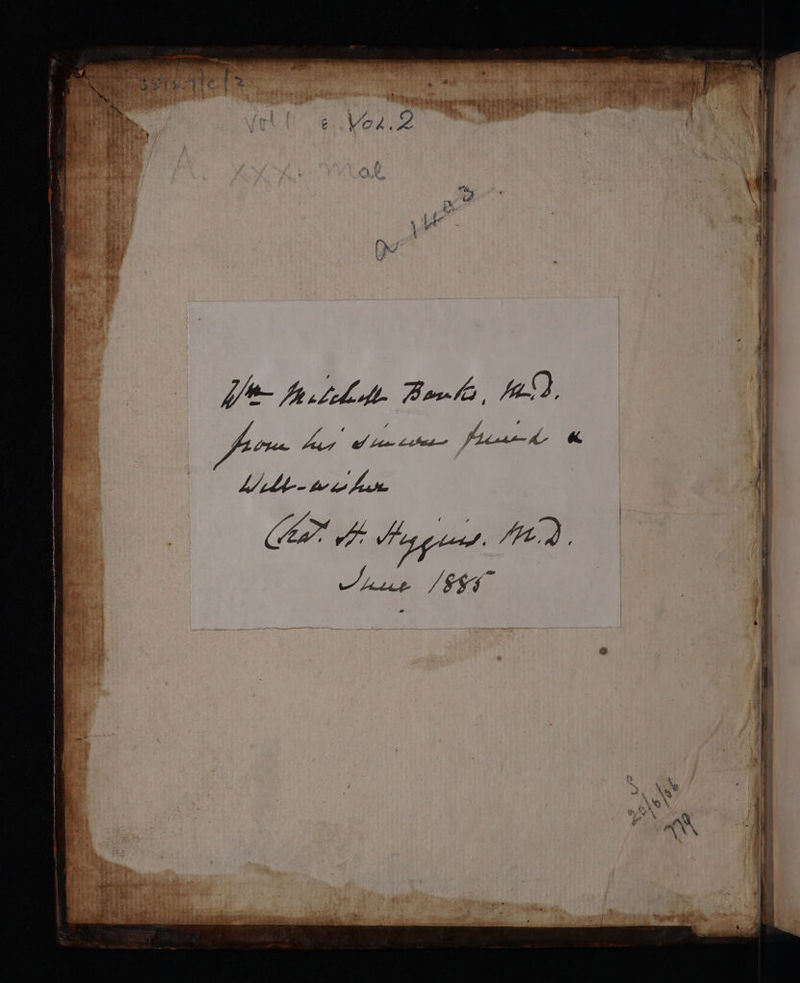 Vol 1 & Vol. 2
A. XXX. Mal
a 1403
Wm Mitchell Banks, M.D.
from his sincere friend &
Well-wisher
Chas. H. Higgins. M.D.
June 1885
S
20/6/06
779